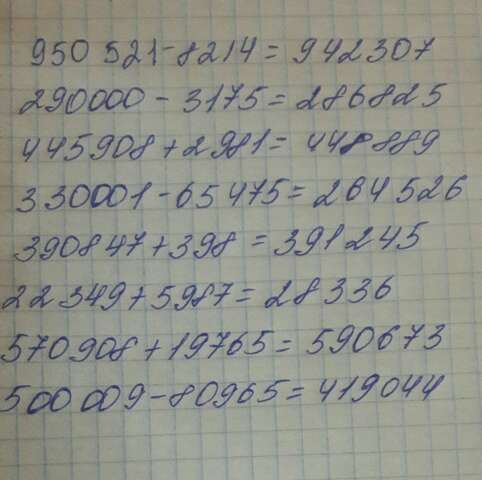 950 521 - 8214 = 942307
290000 - 3175 = 286825
445908 + 2981 = 448889
330001 - 65475 = 264526
390847 + 398 = 391245
22349 + 5987 = 28336
570908 + 19765 = 590673
500 009 - 80965 = 419044